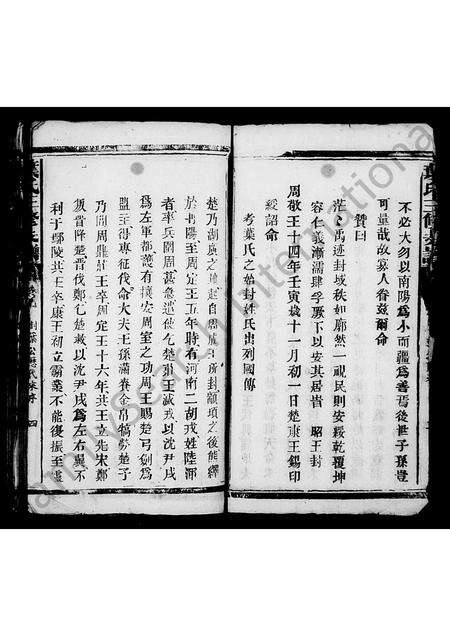 不必大勿以南陽爲小而疆爲善焉後世子孫豈
可量哉故寡人眷兹爾命
贊曰
茫茫禹迹封域秩如廓然一視民則安綏乾覆坤
容仁義漸濡肆孚下以安其居皆 昭王封
周敬王十四年壬寅歲十一月初一日楚康王錫印
綬詔命
考葉氏之始封姓氏出列國傳
楚乃荊蠻之地起自周成王所封顓頊之後熊繹
於丹陽至周定王五年時有河南二胡戎姓陸渾
者率兵闖周甚急遣使乞楚莊王滅戎以沈尹戌
爲左軍都護有攘安周室之功周王賜楚弓劍爲
盟主得專征伐命大夫王孫滿眷金帛犒勞楚子
乃問周鼎莊王卒周定王十六年共王立先宋鄭
叛晋降楚晋伐鄭乞楚救以沈尹戌爲左右翼不
利于鄢陵共王卒康王初立霸業不能復振至靈
葉氏三修宗譜
四
amilySearch International